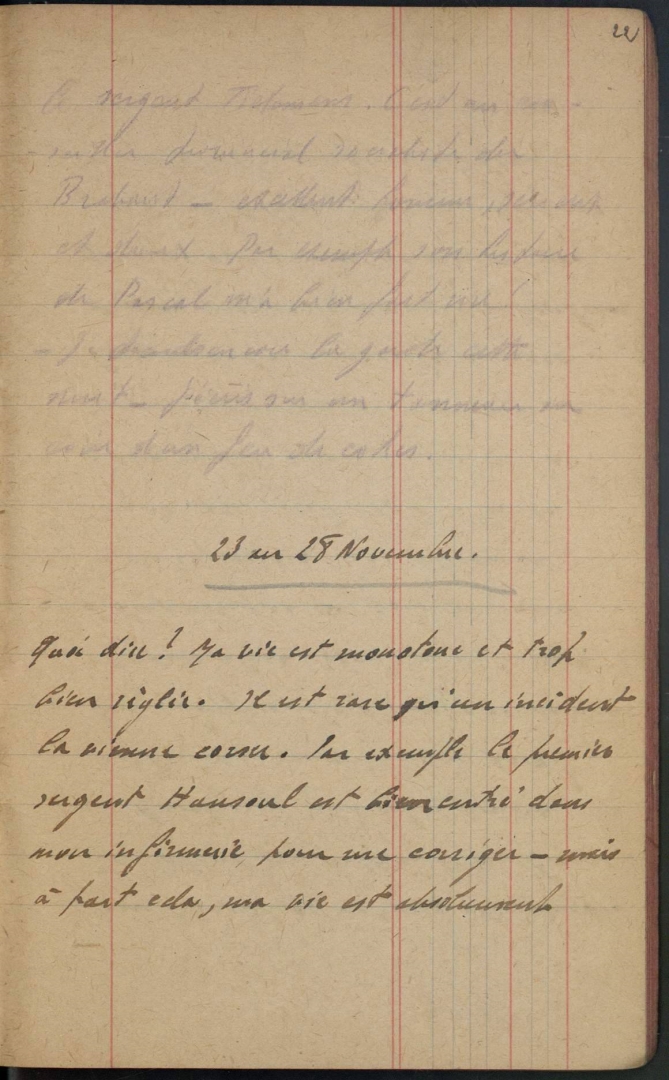 22
le sergent
provincial socialiste du
Brabant – excellent homme,
et doux. Par exemple son histoire
de Pascal m'a bien fait rire !
– la garde cette
nuit – sur un tonneau au
coin d'un feu de coke.
23 au 28 Novembre.
Quoi dire ? Ma vie est monotone et trop
bien réglée. Il est rare qu'un incident
la vienne corser. Par exemple le premier
sergent Hansoul est bien entré dans
mon infirmerie pour me corriger – mais
à part cela, ma vie est absolument